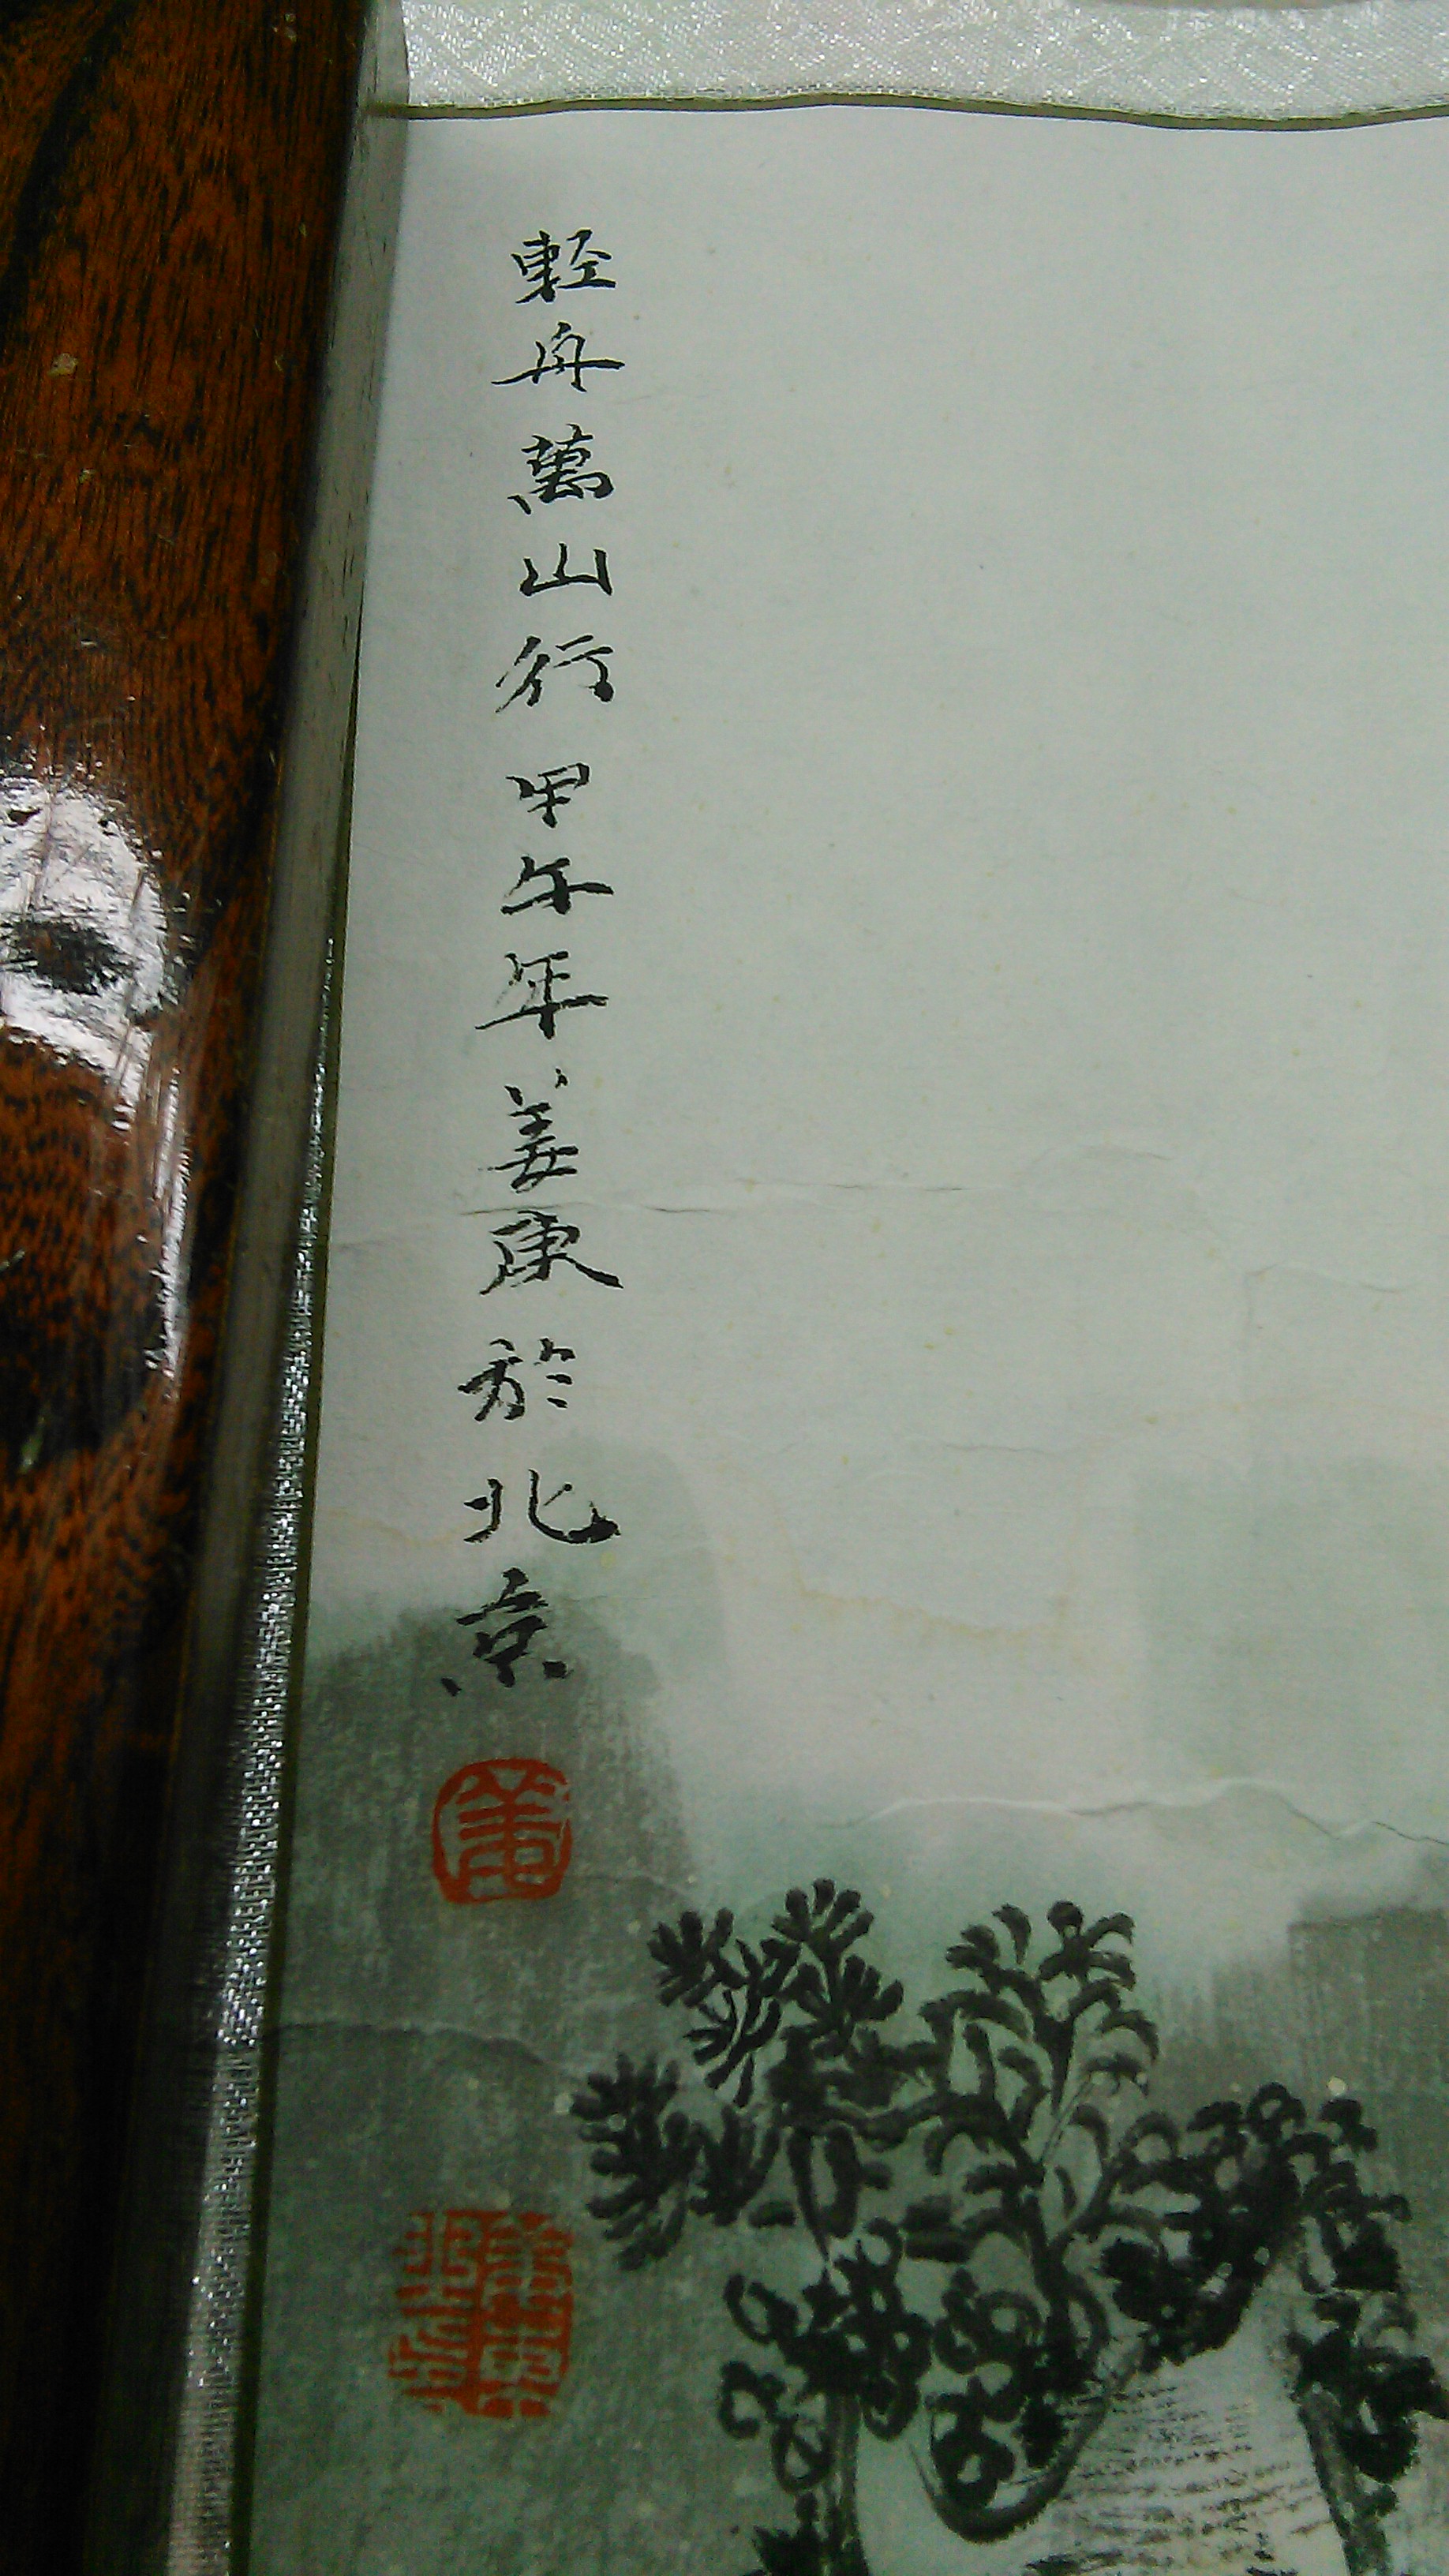 輕舟萬山行甲午年姜陳於北京